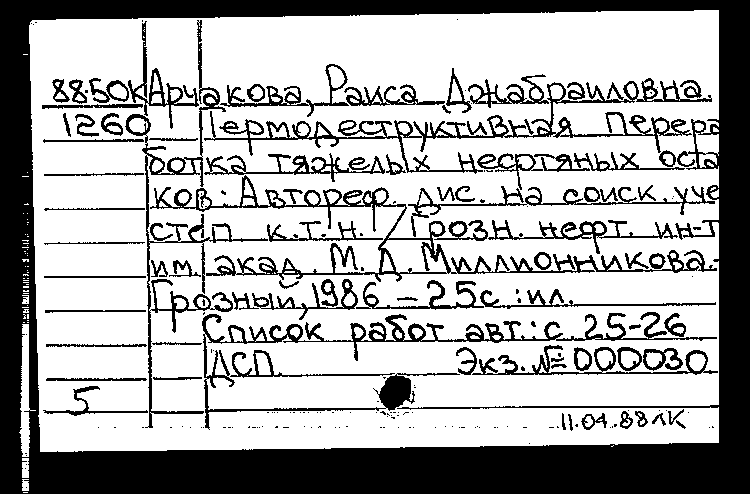 88.50к Арчакова, Раиса Джабраиловна.
1260 Термодеструктивная перера
ботка тяжелых нефтяных оста
ков: Автореф. дис. на соиск. уче
степ к.т.н. / Грозн. нефт. ин-т
им. акад. М. Д. Миллионникова.-
Грозный, 1986. – 25с.: ил.
Список работ авт.: с. 25-26
ДСП. Экз. № 000030
5
11.04.88 ЛК